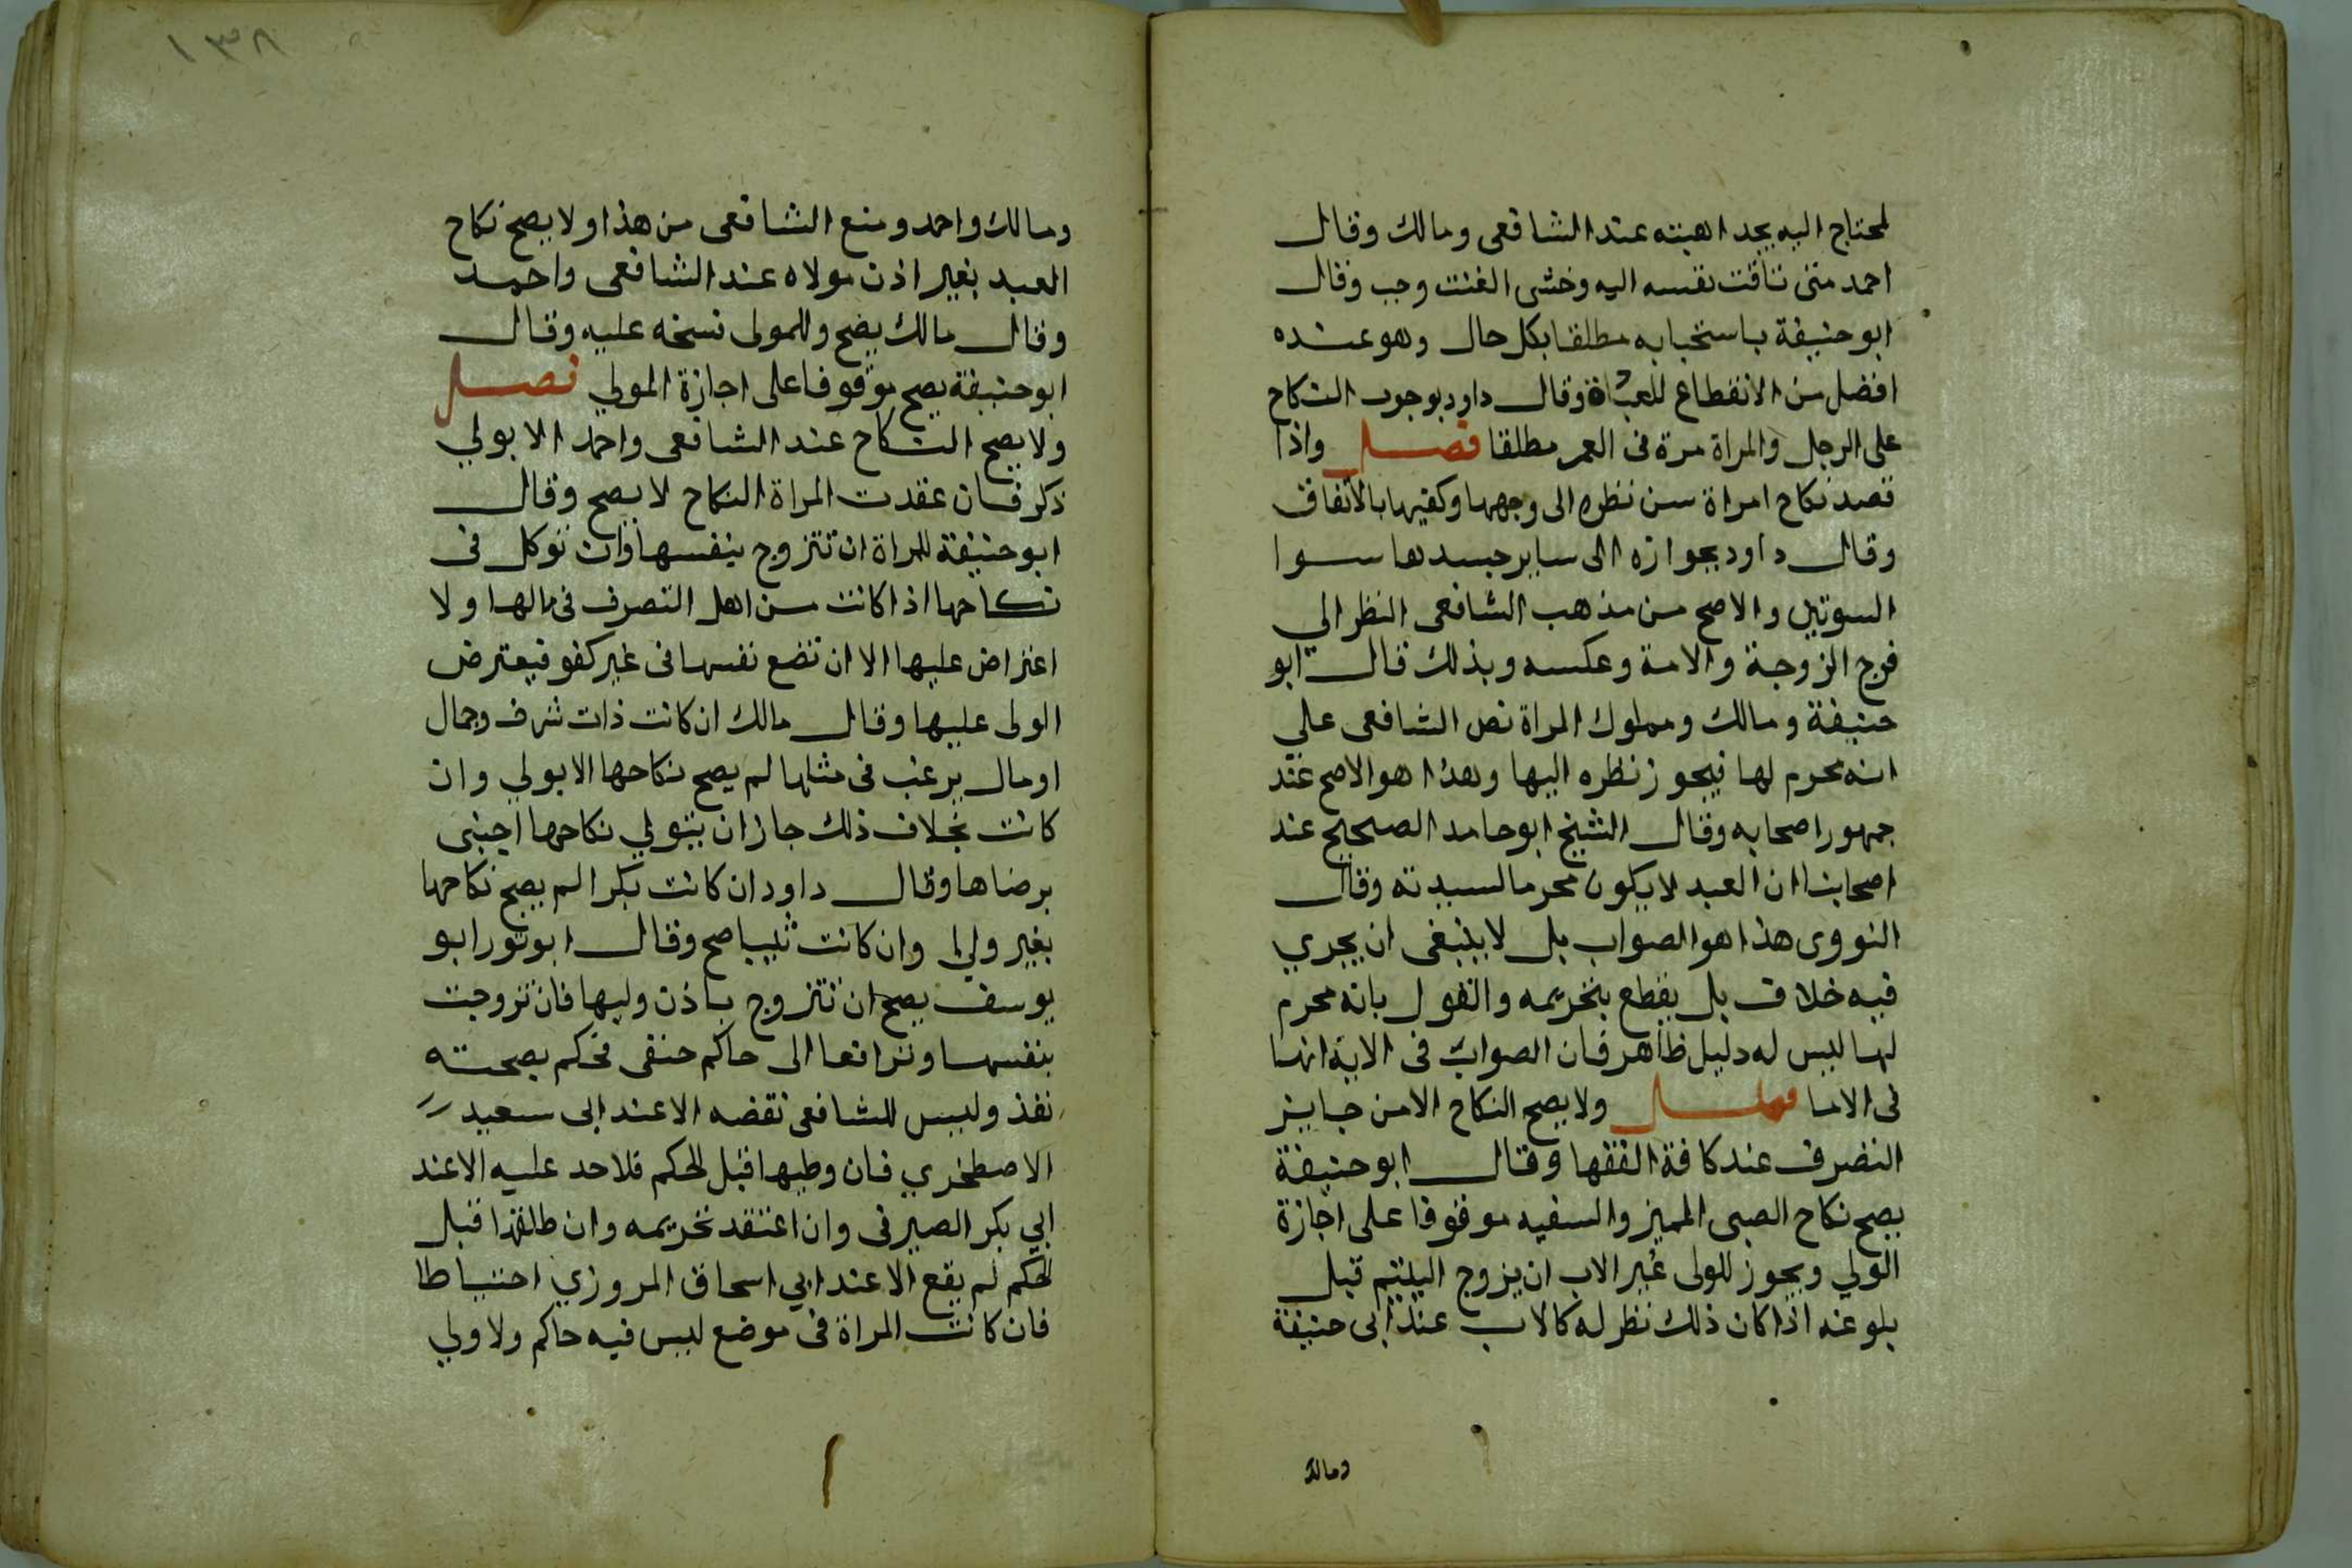 لمحتاج اليه يجد اهبته عند الشافعى ومالك وقال
احمد متى تاقت نفسه اليه وخشى العنت وجب وقال
ابوحنيفة باستحبابه مطلقا بكل حال وهو عنده
افضل من الانقطاع للعبادة وقال داود بوجوب النكاح
على الرجل والمراة مرة فى العمر مطلقا فصل واذا
قصد نكاح امراة سن نظره الى وجهها وكفيها بالاتفاق
وقال داود بجوازه الى ساير جسدها سوا
السوتين والاصح من مذهب الشافعى النظر الي
فرج الزوجة والامة وعكسه وبذلك قال ابو
حنيفة ومالك ومملوك المراة نص الشافعى علي
انه محرم لها فيجوز نظره اليها وهذا هو الاصح عند
جمهور اصحابه وقال الشيخ ابوحامد الصحيح عند
اصحابنا ان العبد لا يكون محرما لسيدته وقال
النووى هذا هو الصواب بل لا ينبغى ان يجري
فيه خلاف بل يقطع بتحريمه والقول بانه محرم
لها ليس له دليل ظاهر فان الصواب فى الاية انها
فى الاما فصل ولا يصح النكاح الا من جايز
التصرف عند كافة الفقها وقال ابوحنيفة
يصح نكاح الصبى المميز والسفيه موقوفا على اجازة
الولي ويجوز للولى غير الاب ان يزوج اليتيم قبل
بلوغه اذا كان ذلك نظر له كالاب عند ابى حنيفة
ومالك
١٣٨
ومالك واحمد ومنع الشافعى من هذا ولا يصح نكاح
العبد بغير اذن مولاه عند الشافعى واحمد
وقال مالك يصح وللمولى نسخه عليه وقال
ابوحنيفة يصح موقوفا على اجازة المولي فصل
ولا يصح النكاح عند الشافعى واحمد الا بولي
ذكر فان عقدت المراة النكاح لا يصح وقال
ابوحنيفة للمراة ان تتزوج بنفسها وان توكل فى
نكاحها اذا كانت من اهل التصرف فى مالها ولا
اعتراض عليها الا ان تضع نفسها فى غير كفو فيعترض
الولى عليها وقال مالك ان كانت ذات شرف وجمال
اومال يرغب فى مثلها لم يصح نكاحها الا بولي وان
كانت بخلاف ذلك جاز ان يتولي نكاحها اجنبى
برضاها وقال داود ان كانت بكرا لم يصح نكاحها
بغير ولى وان كانت ثيبا صح وقال ابوثور ابو
يوسف يصح ان تتزوج باذن وليها فان تزوجت
بنفسها وترافعا الى حاكم حنفى فحكم بصحته
نفذ وليس للشافعى نقضه الا عند ابى سعيد
الاصطخري فان وطيها قبل الحكم فلا حد عليه الا عند
ابي بكر الصيرفى وان اعتقد تحريمه وان طلقها قبل
الحكم لم يقع الا عند ابي اسحاق المروزي احتياطا
فان كانت المراة فى موضع ليس فيه حاكم ولا ولي